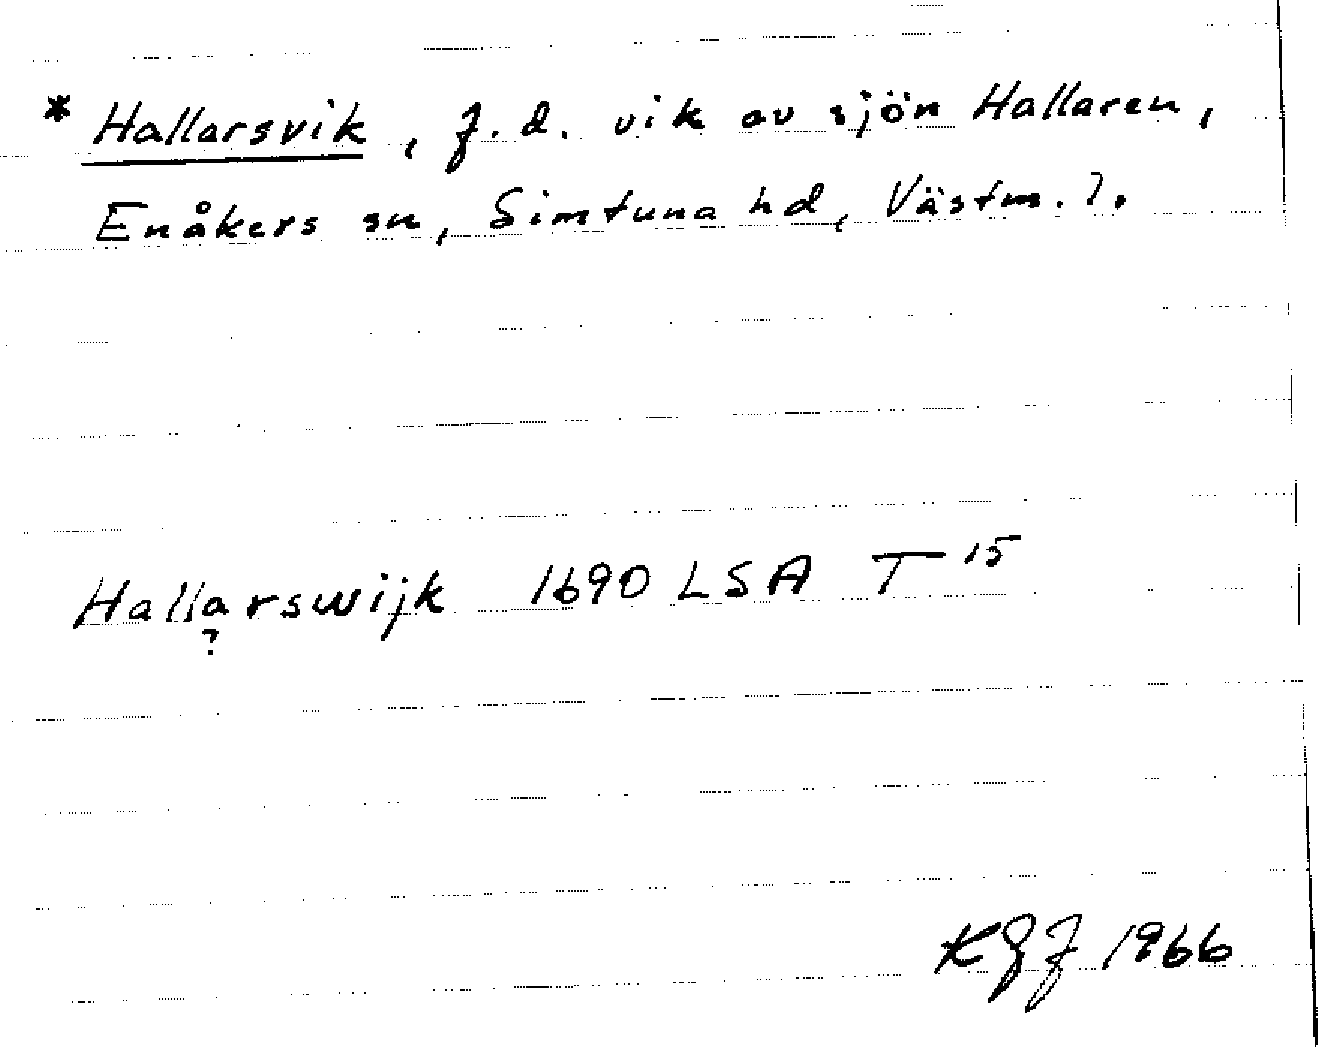 * Hallarsvik, f.d. vik av sjön Hallaren,
Enåkers sn, Simtuna hd, Västm. l.
Hallarswijk 1690 LSA T 15
?
KGF 1966